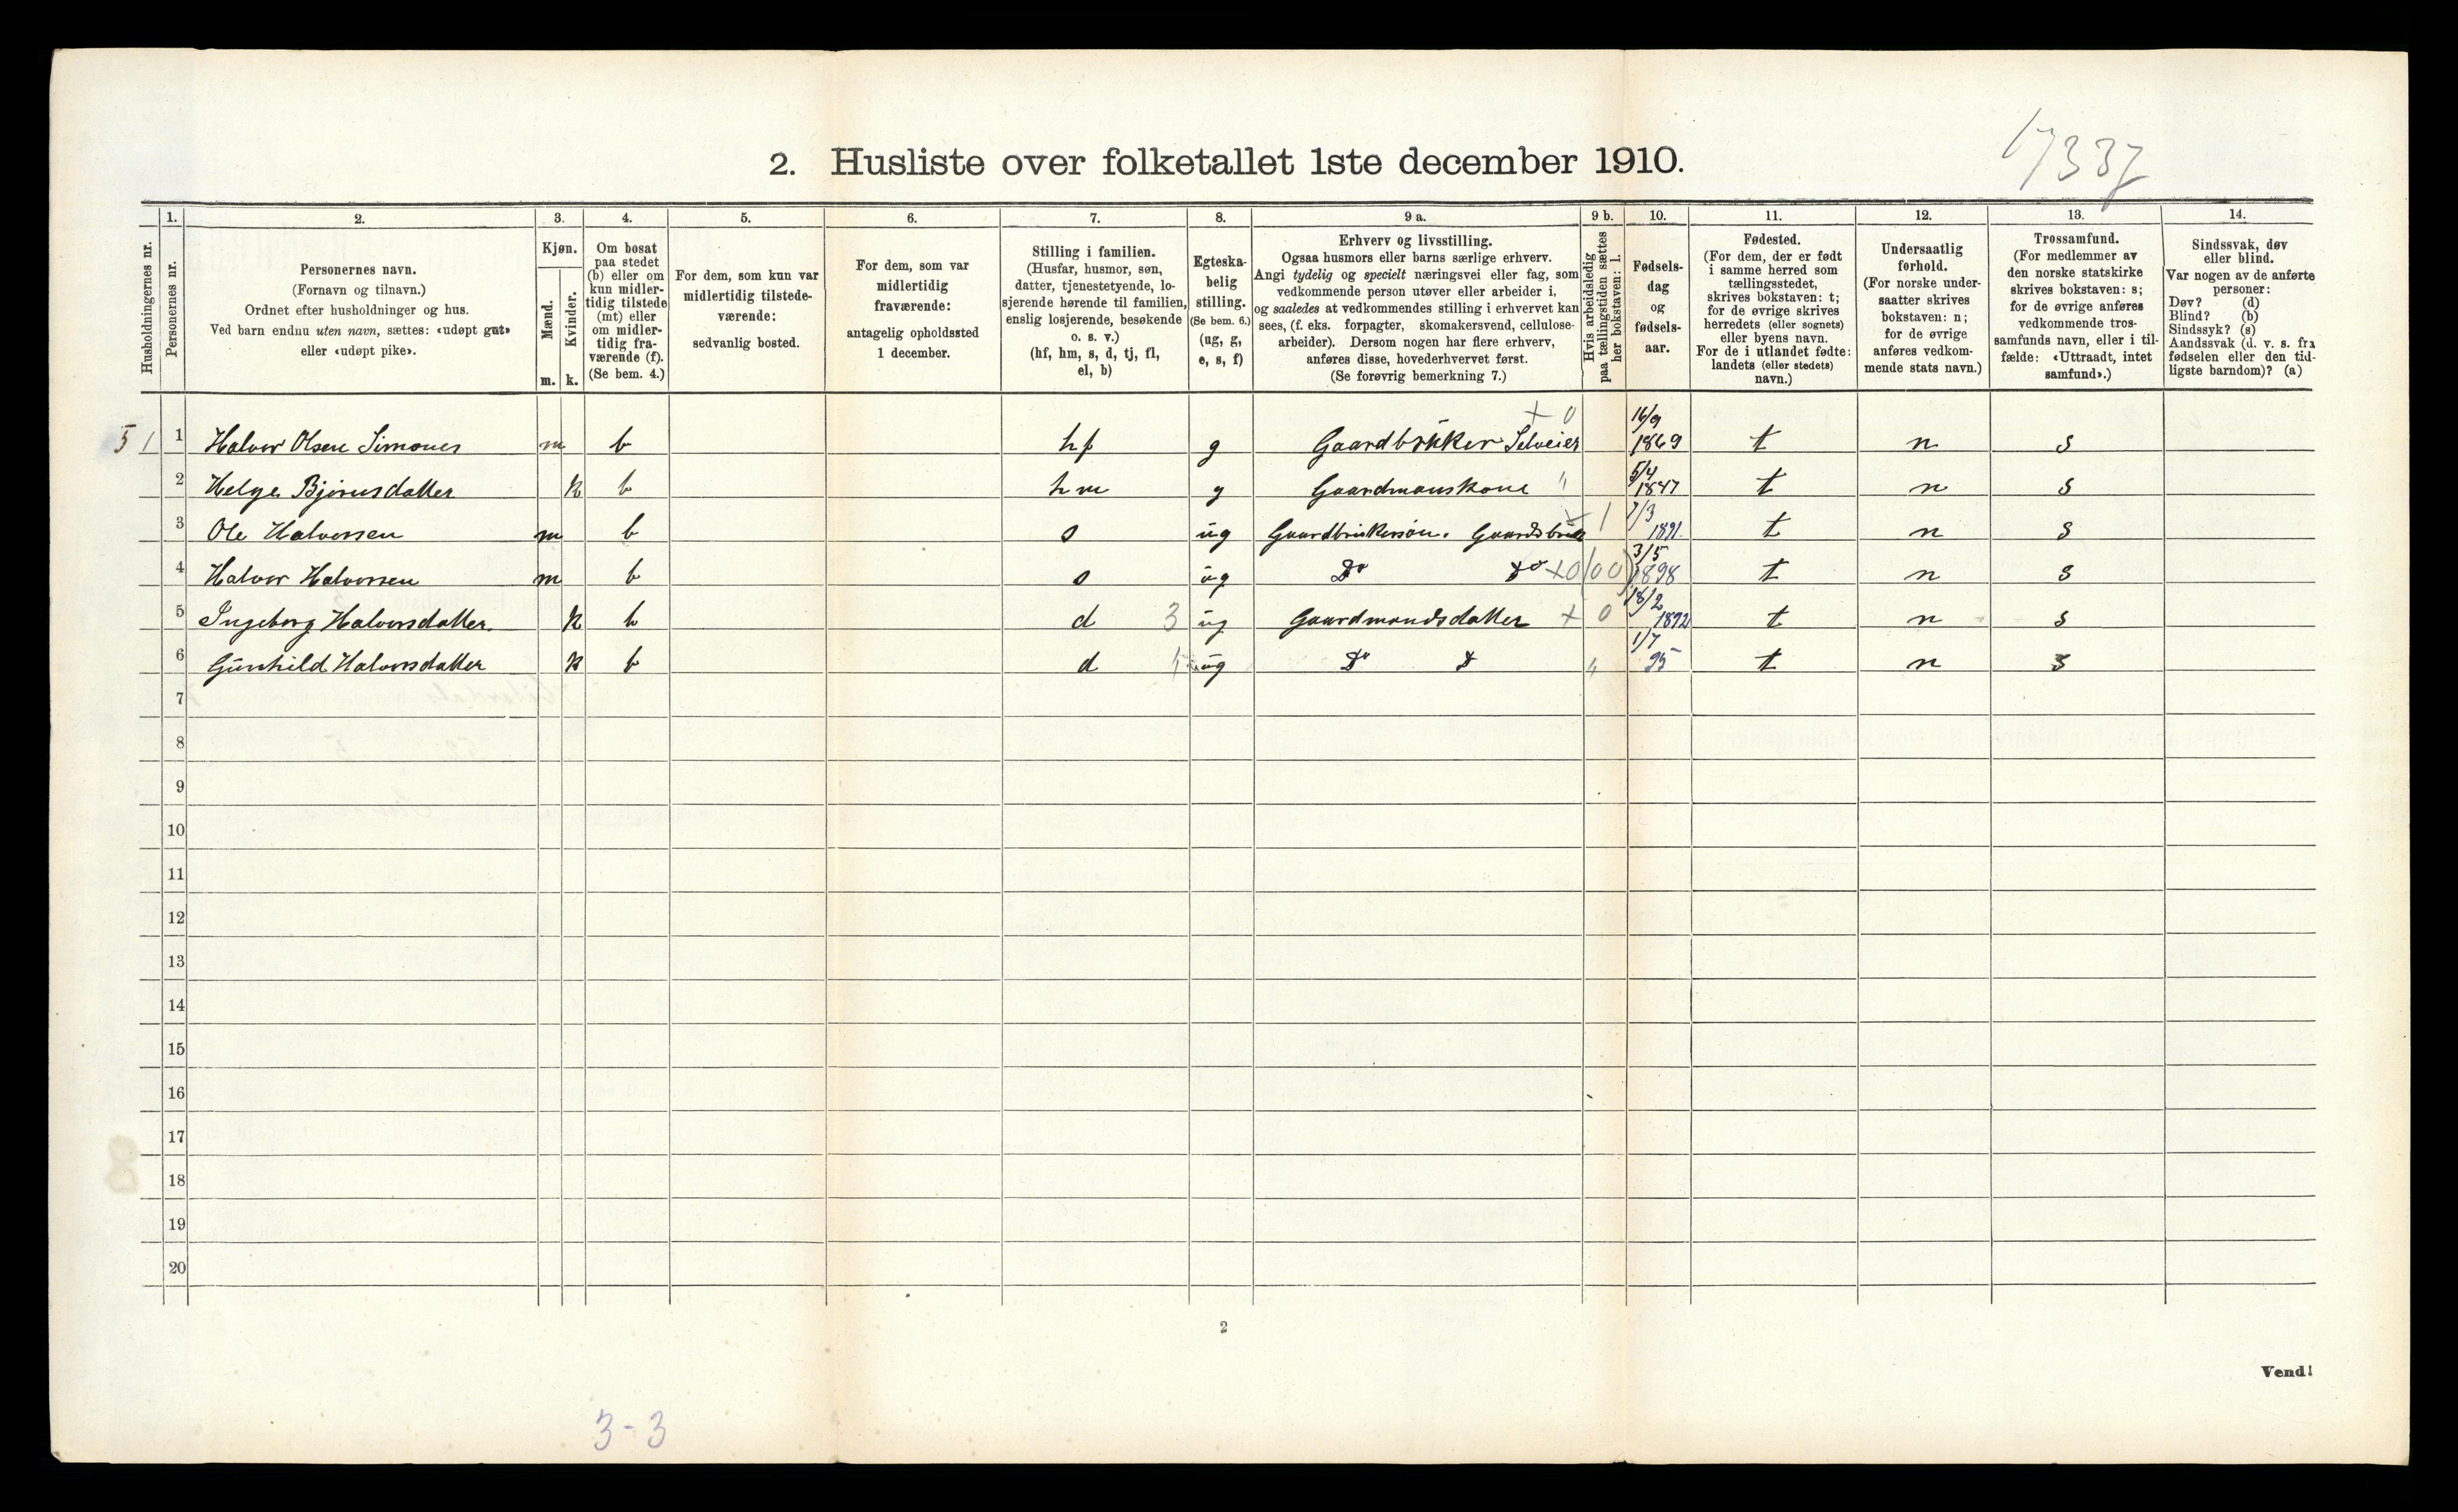 17337
2. Husliste over folketallet 1ste december 1910.
Husholdningernes nr.
1.
Personernes nr.
2.
Personernes navn.
(Fornavn og tilnavn.)
Ordnet efter husholdninger og hus.
Ved barn endnu uten navn, sættes: «udøpt gut»
eller «udøpt pike».
3.
Kjøn.
Mænd.
Kvinder.
m. k.
4.
Om bosat
paa stedet
(b) eller om
kun midler-
tidig tilstede
(mt) eller
om midler-
tidig fra-
værende (f).
(Se bem. 4.)
5.
For dem, som kun var
midlertidig tilstede-
værende:
sedvanlig bosted.
6.
For dem, som var
midlertidig
fraværende:
antagelig opholdssted
1 december.
7.
Stilling i familien.
(Husfar, husmor, søn,
datter, tjenestetyende, lo-
sjerende hørende til familien,
enslig losjerende, besøkende
o. s. v.)
(hf, hm, s, d, tj, fl,
el, b)
8.
Egteska-
belig
stilling.
(Se bem. 6.)
(ug, g,
e, s, f)
9 a.
Erhverv og livsstilling.
Ogsaa husmors eller barns særlige erhverv.
Angi tydelig og specielt næringsvei eller fag, som
vedkommende person utøver eller arbeider i,
og saaledes at vedkommendes stilling i erhvervet kan
sees, (f. eks. forpagter, skomakersvend, cellulose-
arbeider). Dersom nogen har flere erhverv,
anføres disse, hovederhvervet først.
(Se forøvrig bemerkning 7.)
9 b.
Hvis arbeidsledig
paa tællingstiden sættes
her bokstaven: l.
10.
Fødsels-
dag
og
fødsels-
aar.
11.
Fødested.
(For dem, der er født
i samme herred som
tællingsstedet,
skrives bokstaven: t;
for de øvrige skrives
herredets (eller sognets)
eller byens navn.
For de i utlandet fødte:
landets (eller stedets)
navn.)
12.
Undersaatlig
forhold.
(For norske under-
saatter skrives
bokstaven: n;
for de øvrige
anføres vedkom-
mende stats navn.)
13.
Trossamfund.
(For medlemmer av
den norske statskirke
skrives bokstaven: s;
for de øvrige anføres
vedkommende tros-
samfunds navn, eller i til-
fælde: «Uttraadt, intet
samfund».)
14.
Sindssvak, døv
eller blind.
Var nogen av de anførte
personer:
Døv? (d)
Blind? (b)
Sindssyk? (s)
Aandssvak (d. v. s. fra
fødselen eller den tid-
ligste barndom)? (a)
5 1 1 Halvor Olsen Simones m b hf g Gaardbruker Selveier + 0 16/9 1869 t n s
2 Helge Bjørnsdatter k b hm g Gaardmanskone " 5/4 1847 t n s
3 Ole Halvorsen m b s ug Gaardbrukersøn. + 1 7/3 1891 t n s
4 Halvor Halvorsen m b s ug Do Do +0 3/5 1898 t n s
5 Ingeborg Halvorsdatter. k b d 3 ug Gaardmandsdatter + 0 18/2 1892 t n s
6 Gunhild Halvorsdatter k b d ug Do D " 1/7 95 t n s
7
8
9
10
11
12
13
14
15
16
17
18
19
20
2
Vend!
3-3